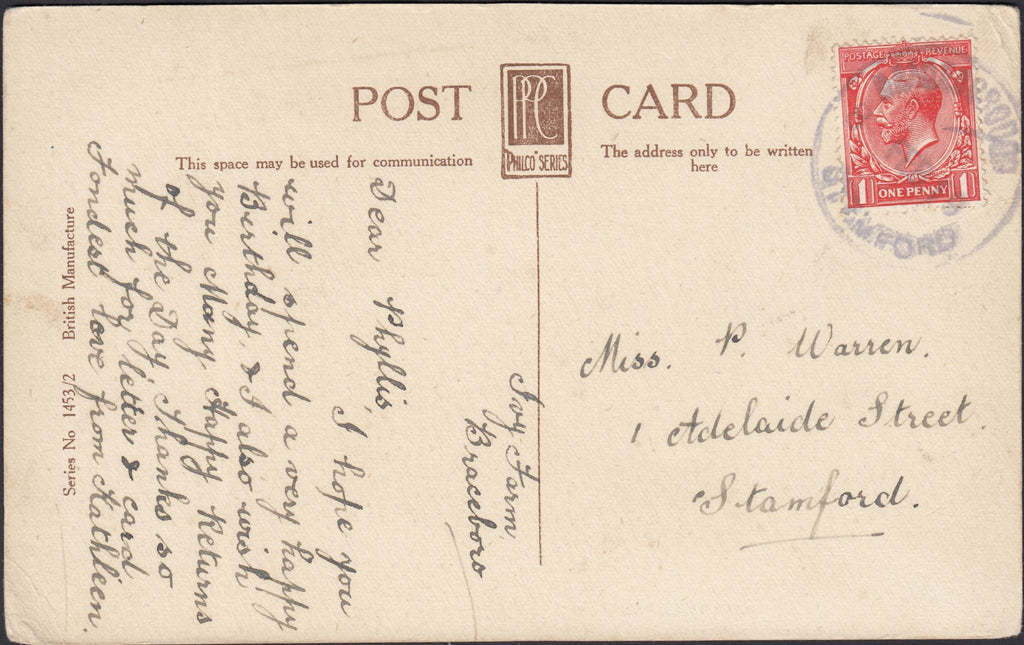 POST CARD
PPC
"PHILCO" SERIES
This space may be used for communication
The address only to be written
here
POSTAGE REVENUE
1 ONE PENNY 1
STAMFORD
Ivy Farm
Braceboro
Dear Phyllis,
I hope you
will spend a very happy
Birthday, & I also wish
you Many Happy Returns
of the Day. Thanks so
much for letter & card
Fondest love from Kathleen.
Miss. P. Warren.
1 Adelaide Street.
Stamford.
Series No 1453/2 British Manufacture